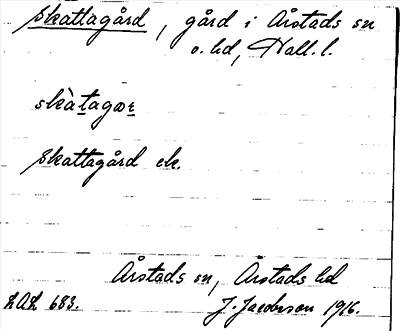 Skattagård, gård i Årstads sn
o. hd, Hall. l.
skàtagoͤr
Skattagård ek.
Årstads sn, Årstads hd
LAL 683. J. Jacobsson 1916.